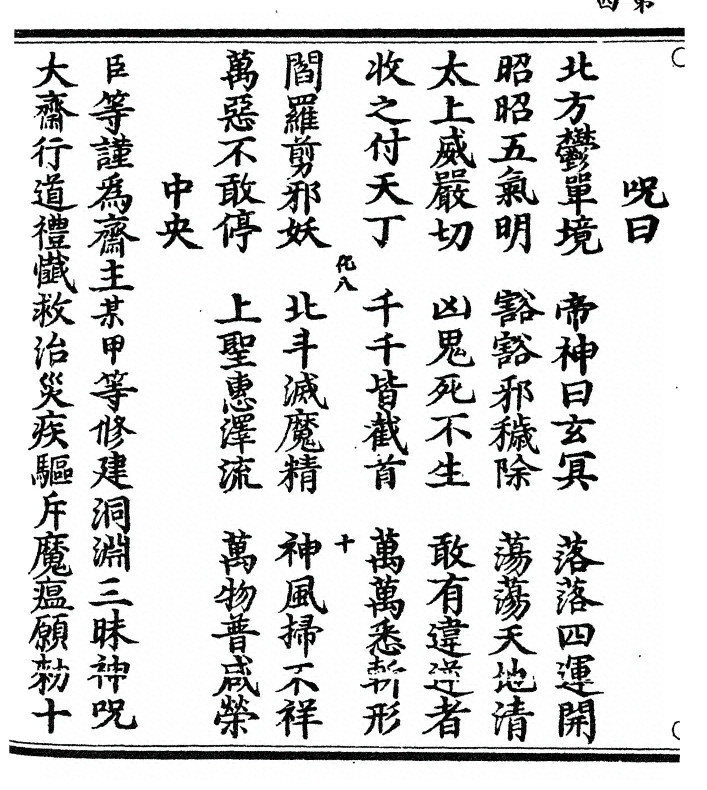 呪曰
北方鬱單境　帝神曰玄冥　落落四運開
昭昭五氣明　豁豁邪穢除　蕩蕩天地清
太上威嚴切　凶鬼死不生　敢有違逆者
收之付天丁　千千皆截首　萬萬悉斬形
化八　十
閻羅剪邪妖　北斗滅魔精　神風掃不祥
萬惡不敢停　上聖惠澤流　萬物普咸榮
中央
臣等謹爲齋主某甲等修建洞淵三昧神呪
大齋行道禮懺救治災疾驅斥魔瘟願勑十